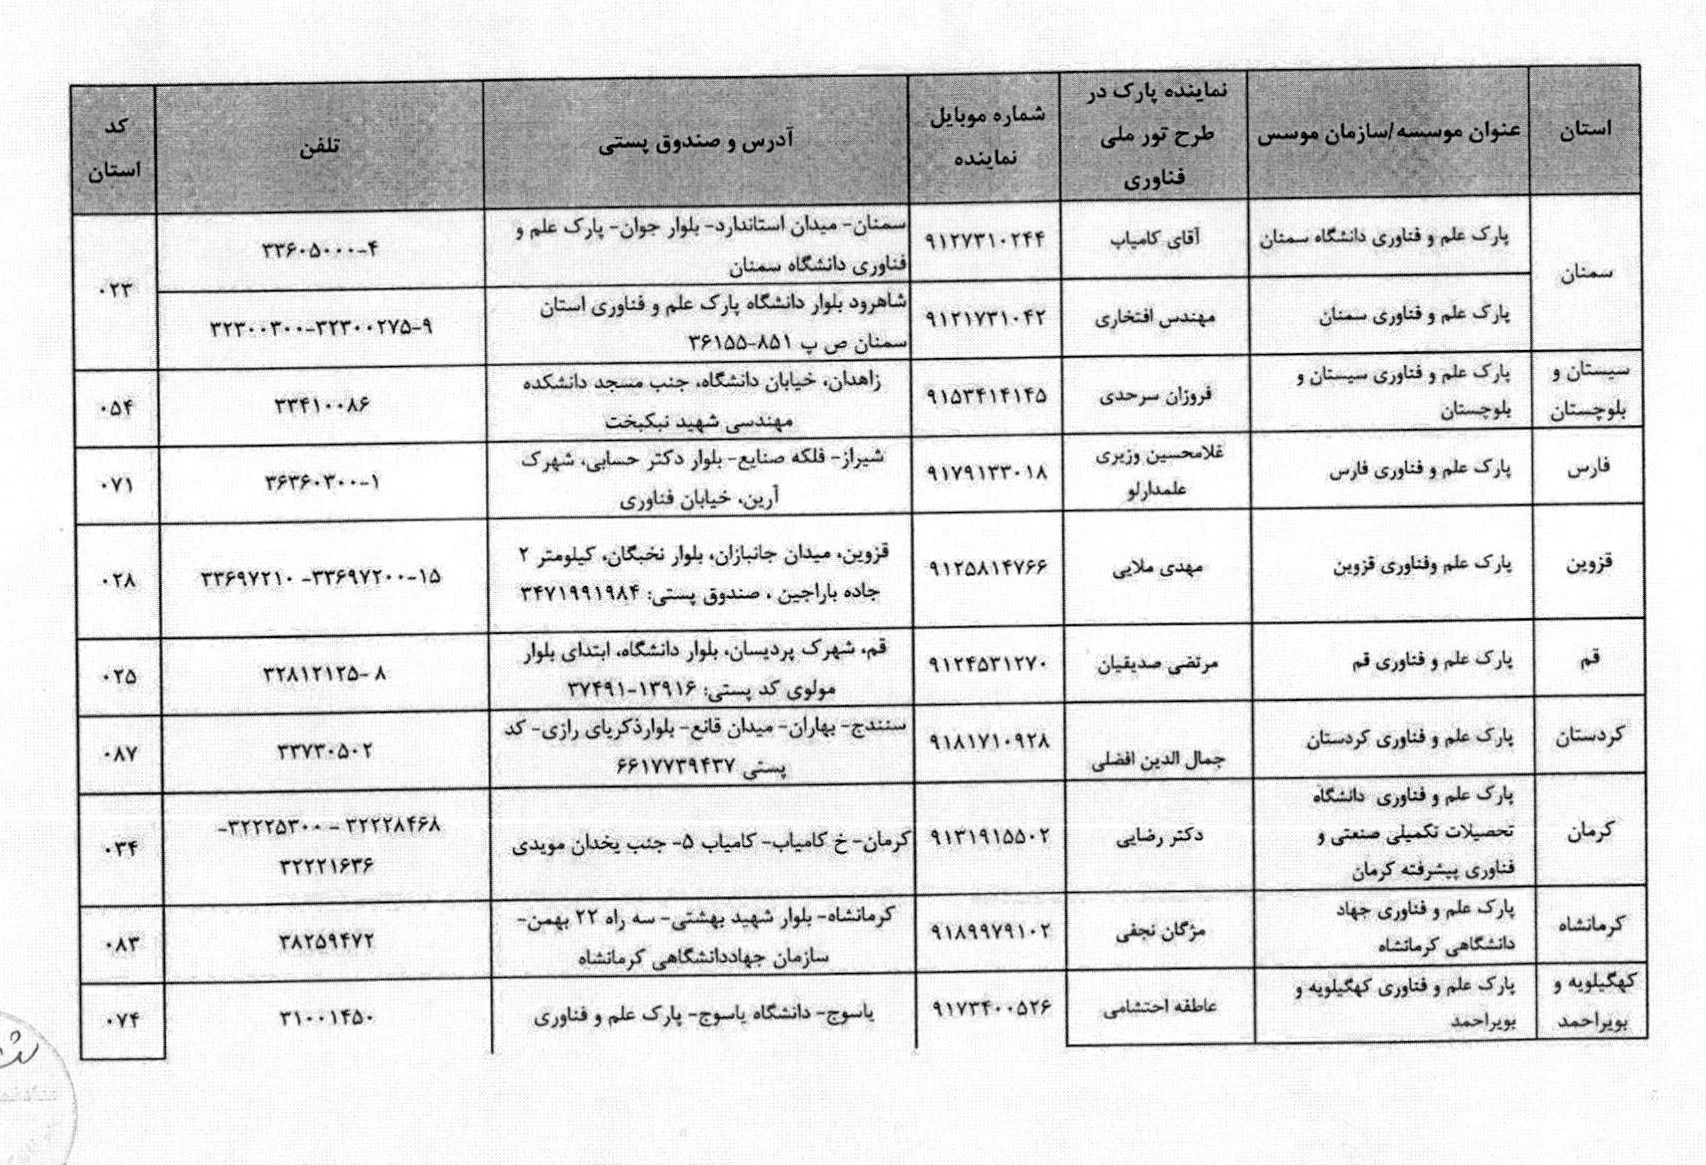 استان
عنوان موسسه/سازمان موسس
نماینده پارک در
طرح تور ملی
فناوری
شماره موبایل
نماینده
آدرس و صندوق پستی
تلفن
کد
استان
سمنان
پارک علم و فناوری دانشگاه سمنان
آقای کامیاب
۹۱۲۷۳۱۰۲۴۴
سمنان- میدان استاندارد- بلوار جوان- پارک علم و
فناوری دانشگاه سمنان
۳۳۶۰۵۰۰۰-۴
۰۲۳
پارک علم و فناوری سمنان
مهندس افتخاری
۹۱۲۱۷۳۱۰۴۲
شاهرود بلوار دانشگاه پارک علم و فناوری استان
سمنان ص پ ۸۵۱-۳۶۱۵۵
۳۲۳۰۰۳۰۰-۳۲۳۰۰۲۷۵-۹
سیستان و
بلوچستان
پارک علم و فناوری سیستان و
بلوچستان
فروزان سرحدی
۹۱۵۳۴۱۴۱۴۵
زاهدان، خیابان دانشگاه، جنب مسجد دانشکده
مهندسی شهید نیکبخت
۳۳۴۱۰۰۸۶
۰۵۴
فارس
پارک علم و فناوری فارس
غلامحسین وزیری
علمدارلو
۹۱۷۹۱۳۳۰۱۸
شیراز- فلکه صنایع- بلوار دکتر حسابی، شهرک
آرین، خیابان فناوری
۳۶۳۶۰۳۰۰-۱
۰۷۱
قزوین
پارک علم وفناوری قزوین
مهدی ملایی
۹۱۲۵۸۱۴۷۶۶
قزوین، میدان جانبازان، بلوار نخبگان، کیلومتر ۲
جاده باراجین ، صندوق پستی: ۳۴۷۱۹۹۱۹۸۴
۳۳۶۹۷۲۱۰ -۳۳۶۹۷۲۰۰-۱۵
۰۲۸
قم
پارک علم و فناوری قم
مرتضی صدیقیان
۹۱۲۴۵۳۱۲۷۰
قم، شهرک پردیسان، بلوار دانشگاه، ابتدای بلوار
مولوی کد پستی: ۱۳۹۱۶-۳۷۴۹۱
۳۲۸۱۲۱۲۵- ۸
۰۲۵
کردستان
پارک علم و فناوری کردستان
جمال الدین افضلی
۹۱۸۱۷۱۰۹۲۸
سنندج- بهاران- میدان قانع- بلوارذکریای رازی- کد
پستی ۶۶۱۷۷۳۹۴۳۷
۳۳۷۳۰۵۰۲
۰۸۷
کرمان
پارک علم و فناوری دانشگاه
تحصیلات تکمیلی صنعتی و
فناوری پیشرفته کرمان
دکتر رضایی
۹۱۳۱۹۱۵۵۰۲
کرمان- خ کامیاب- کامیاب ۵- جنب یخدان مویدی
۳۲۲۲۸۴۶۸ - ۳۲۲۲۵۳۰۰-
۳۲۲۲۱۶۳۶
۰۳۴
کرمانشاه
پارک علم و فناوری جهاد
دانشگاهی کرمانشاه
مژگان نجفی
۹۱۸۹۹۷۹۱۰۲
کرمانشاه- بلوار شهید بهشتی- سه راه ۲۲ بهمن-
سازمان جهاددانشگاهی کرمانشاه
۳۸۲۵۹۴۷۲
۰۸۳
کهگیلویه و
بویراحمد
پارک علم و فناوری کهگیلویه و
بویراحمد
عاطفه احتشامی
۹۱۷۳۴۰۰۵۲۶
یاسوج- دانشگاه یاسوج- پارک علم و فناوری
۳۱۰۰۱۴۵۰
۰۷۴